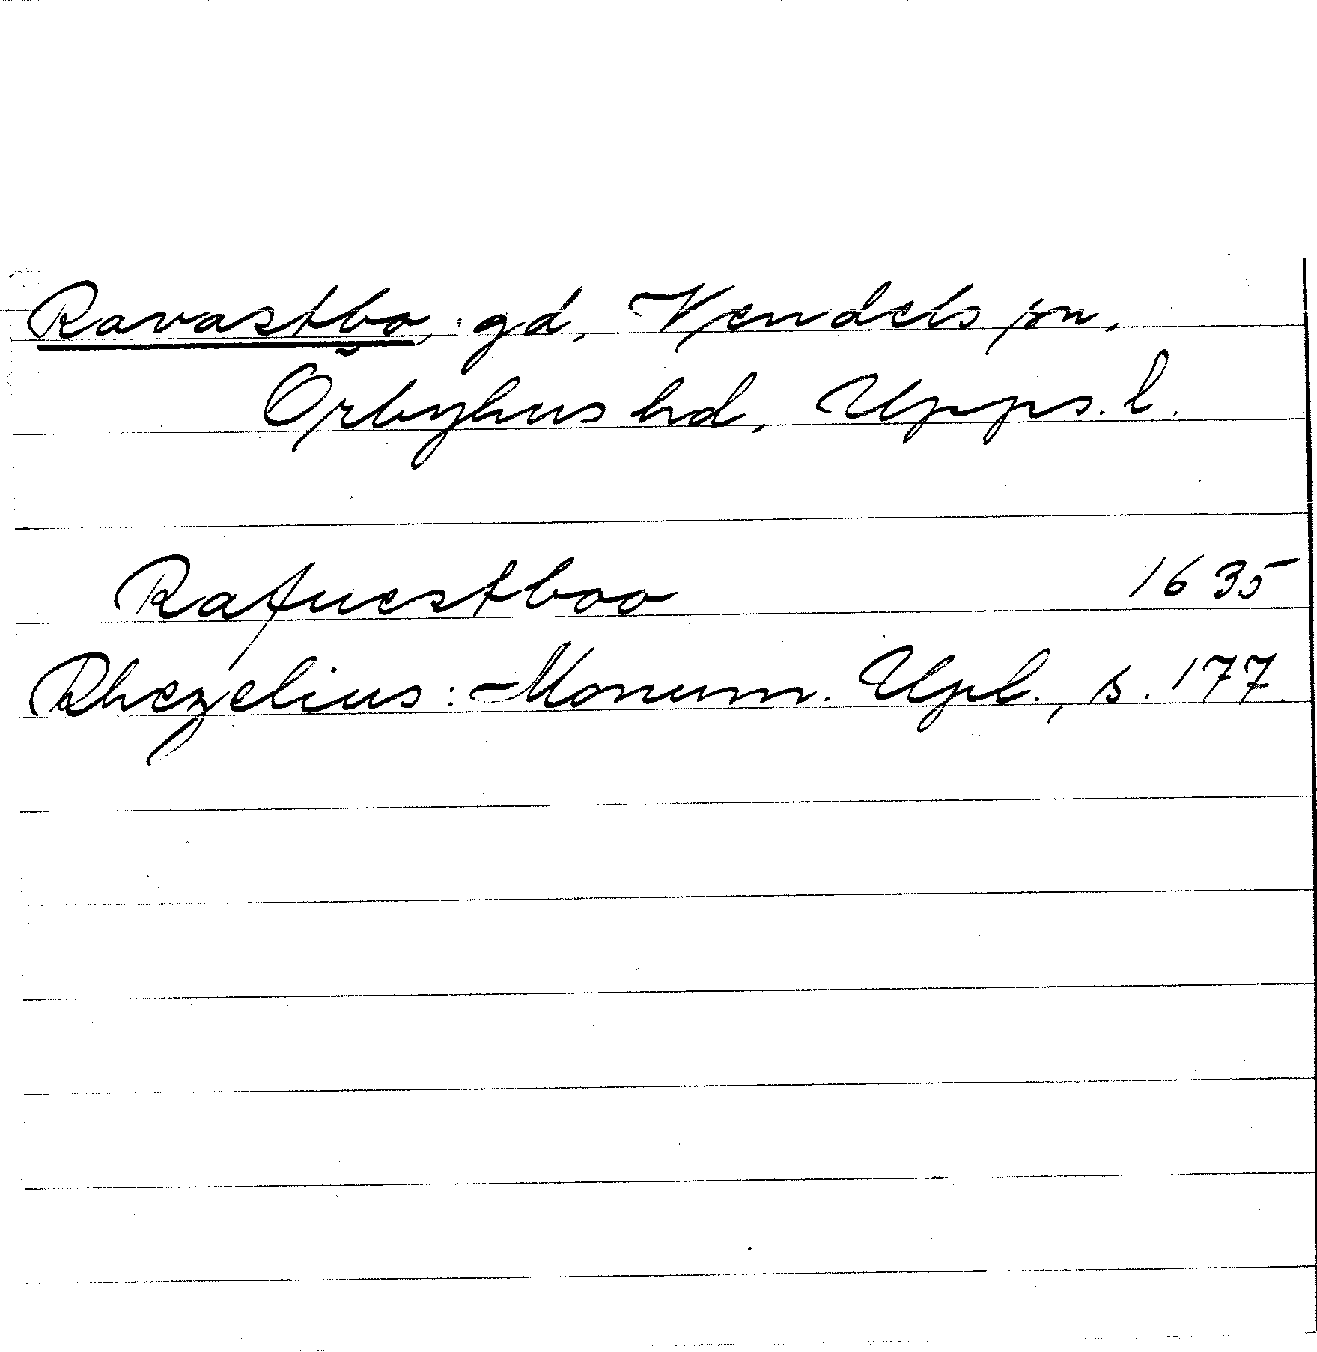 Ravastbo, gd, Vendels sn,
Örbyhus hd, Upps. l.
Rafuestboo 1635
Rhezelius: Monum. Upl., s. 177